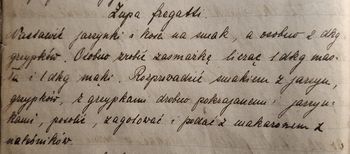 Zupa fregatti.
Nastawić jarzynki i kość na smak, a osobno 2 dkg
grzybków. Osobno zrobić zasmażkę licząc 1 dkg mas-
ła i 1 dkg mąki. Rozprowadzić smakiem z jarzyn,
grzybków, z grzybkami drobno pokrajanemi i jarzyn-
kami, posolić, zagotować i podać z makaronem z
naleśników.